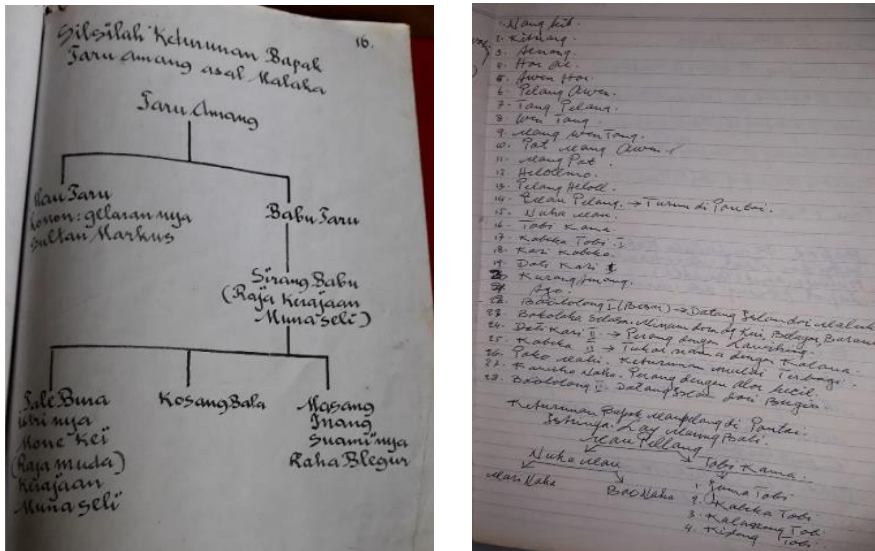 16.
Silsilah Keturunan Bapak
Taru Amang asal Malaka
Taru Amang
Mau Taru
Konon: gelaran nya
Sultan Markus
Babu Taru
Sirang Babu
(Raja Kerajaan
Muna seli)
Tale Buna
istri nya
Mone Kei
(Raja muda)
Kerajaan
Muna seli
Kosang Bala
Masang
Inang
Suami nya
Raha Blegur
1. Nang
2.
3.
4. Hoi
5. Awen Hoi
6. Pelang Awen.
7. Tang Pelang.
8. Wen Tang
9. Mang Wen Tang.
10. Pat Mang Awen
11. Mang Pat.
12.
13. Pelang
14. Mau Pelang. → Turun di Pantai.
15. Nuha Mau.
16. Tobi Kama
17. Kabika Tobi I
18. Kari Kabika
19. Dati Kari I
20 Kurang
21 Ago.
22. Baololong I (Besar) → Datang Islam dari Maluk
23. Bakolaka
24. Dati Kari II → Perang dengan
25. Kabika II → Tukar nama dengan
26. Pako Maki. Keturunan mulai Terbagi.
27. Naho. Perang dengan alor kecil.
28. Baololong II. Datang Islam dari Bugis.
Keturunan Bapak Maupelang di Pantai.
Istrinya: Lay Maung Bali.
Mau Pellang
Nuha Mau
Tobi Kama.
Mari Naha
Bao Naha
1. Juma Tobi
2. Kabika Tobi
3. Tobi
4. Tobi